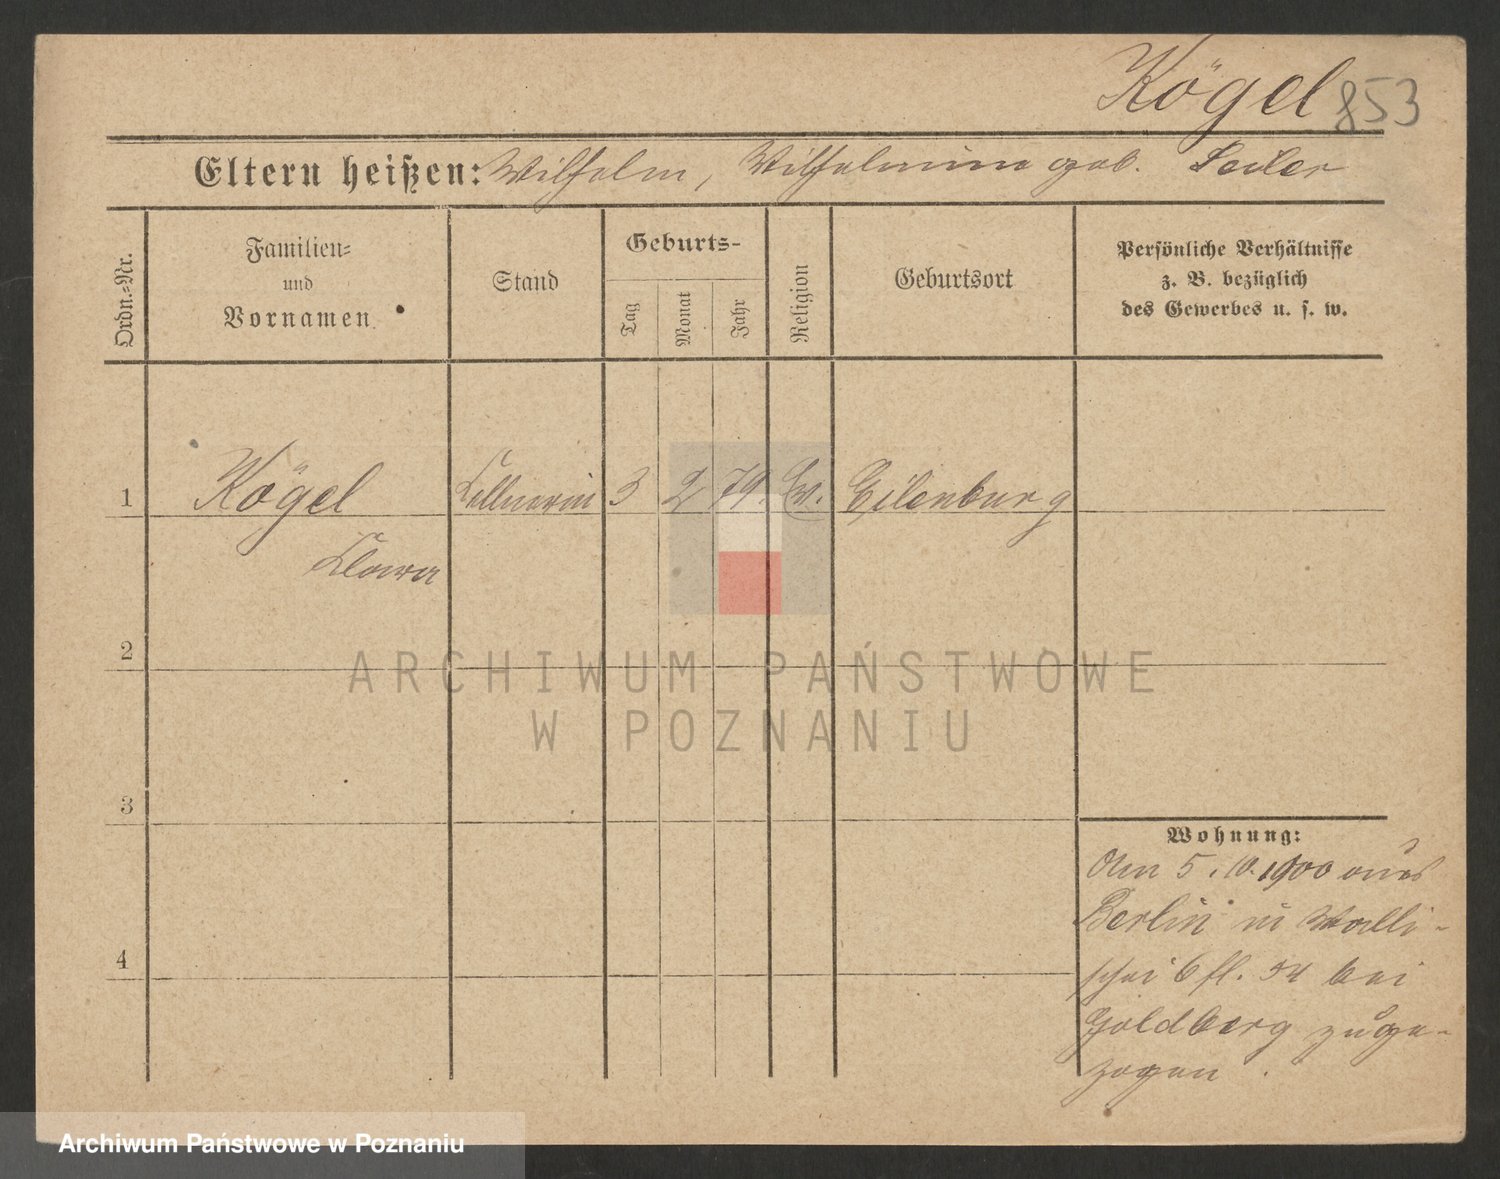 Kögel 853
Eltern heißen: Wilhelm, Wilhelmine geb. Seiler
Ordn.-Nr.
Familien-
und
Vornamen.
Stand
Geburts-
Tag
Monat
Jahr
Religion
Geburtsort
Persönliche Verhältnisse
z. B. bezüglich
des Gewerbes u. s. w.
1 Kögel Kellnerin 3 2 79. Ev. Eilenburg
Klara
2
ARCHIWUM PAŃSTWOWE
W POZNANIU
3
Wohnung:
Am 5. 10. 1900 aus
Berlin in Walli-
schei 54 bei
4
Goldberg zuge-
zogen.
Archiwum Państwowe w Poznaniu